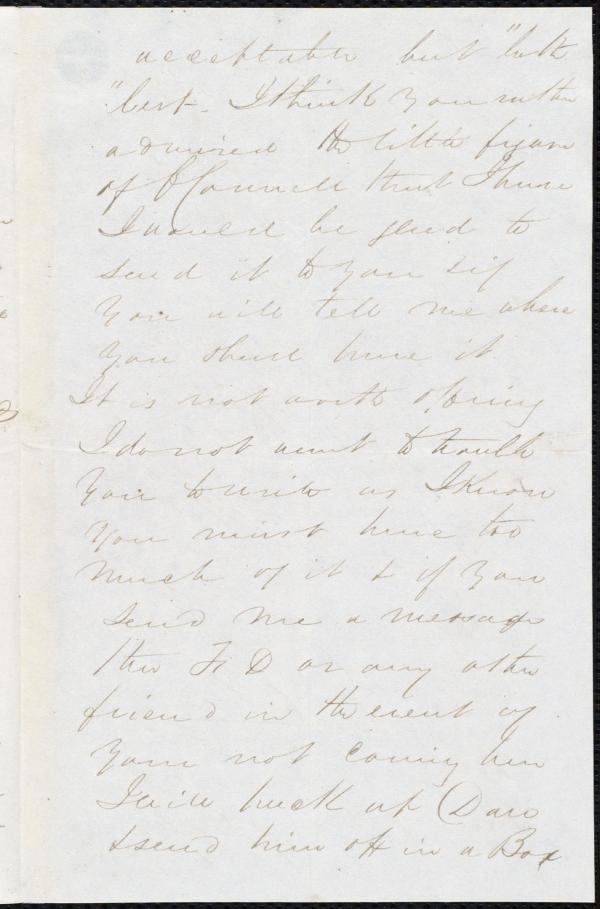 acceptable but "both
"best. I think you rather
admired the little figure
of O'Connell that I have
I would be glad to
send it to you if
you will tell me where
you shall have it
It is not worth offering
I do not want to trouble
you to write as I know
you must have too
much of it & if you
send me a message
thro F. D or any other
friend in the event of
your not coming here
I will pack up Dan
& send him off in a Box